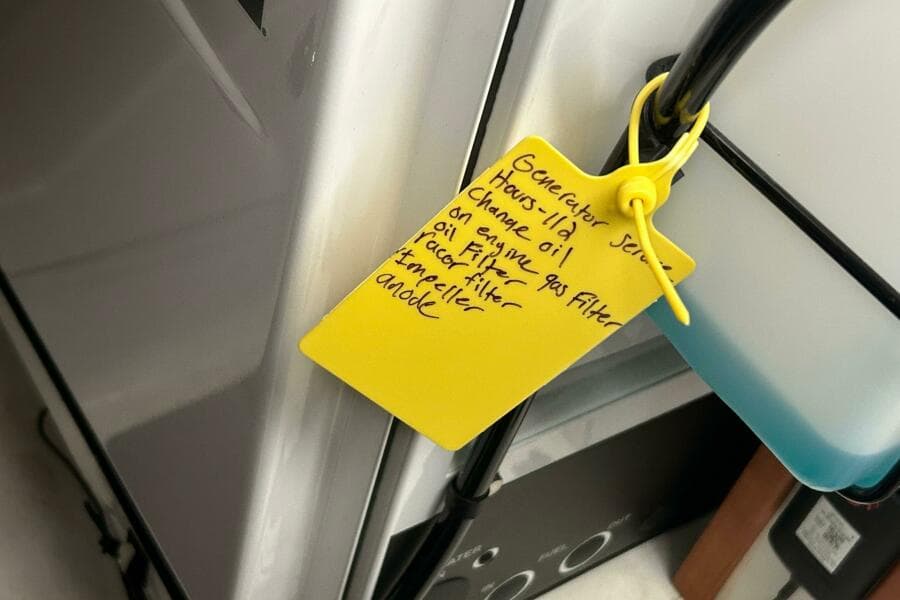 Generator Service
Hours-112
Change oil
on engine gas Filter
oil Filter
racor filter
Impeller
anode
WATER
IN
FUEL OUT